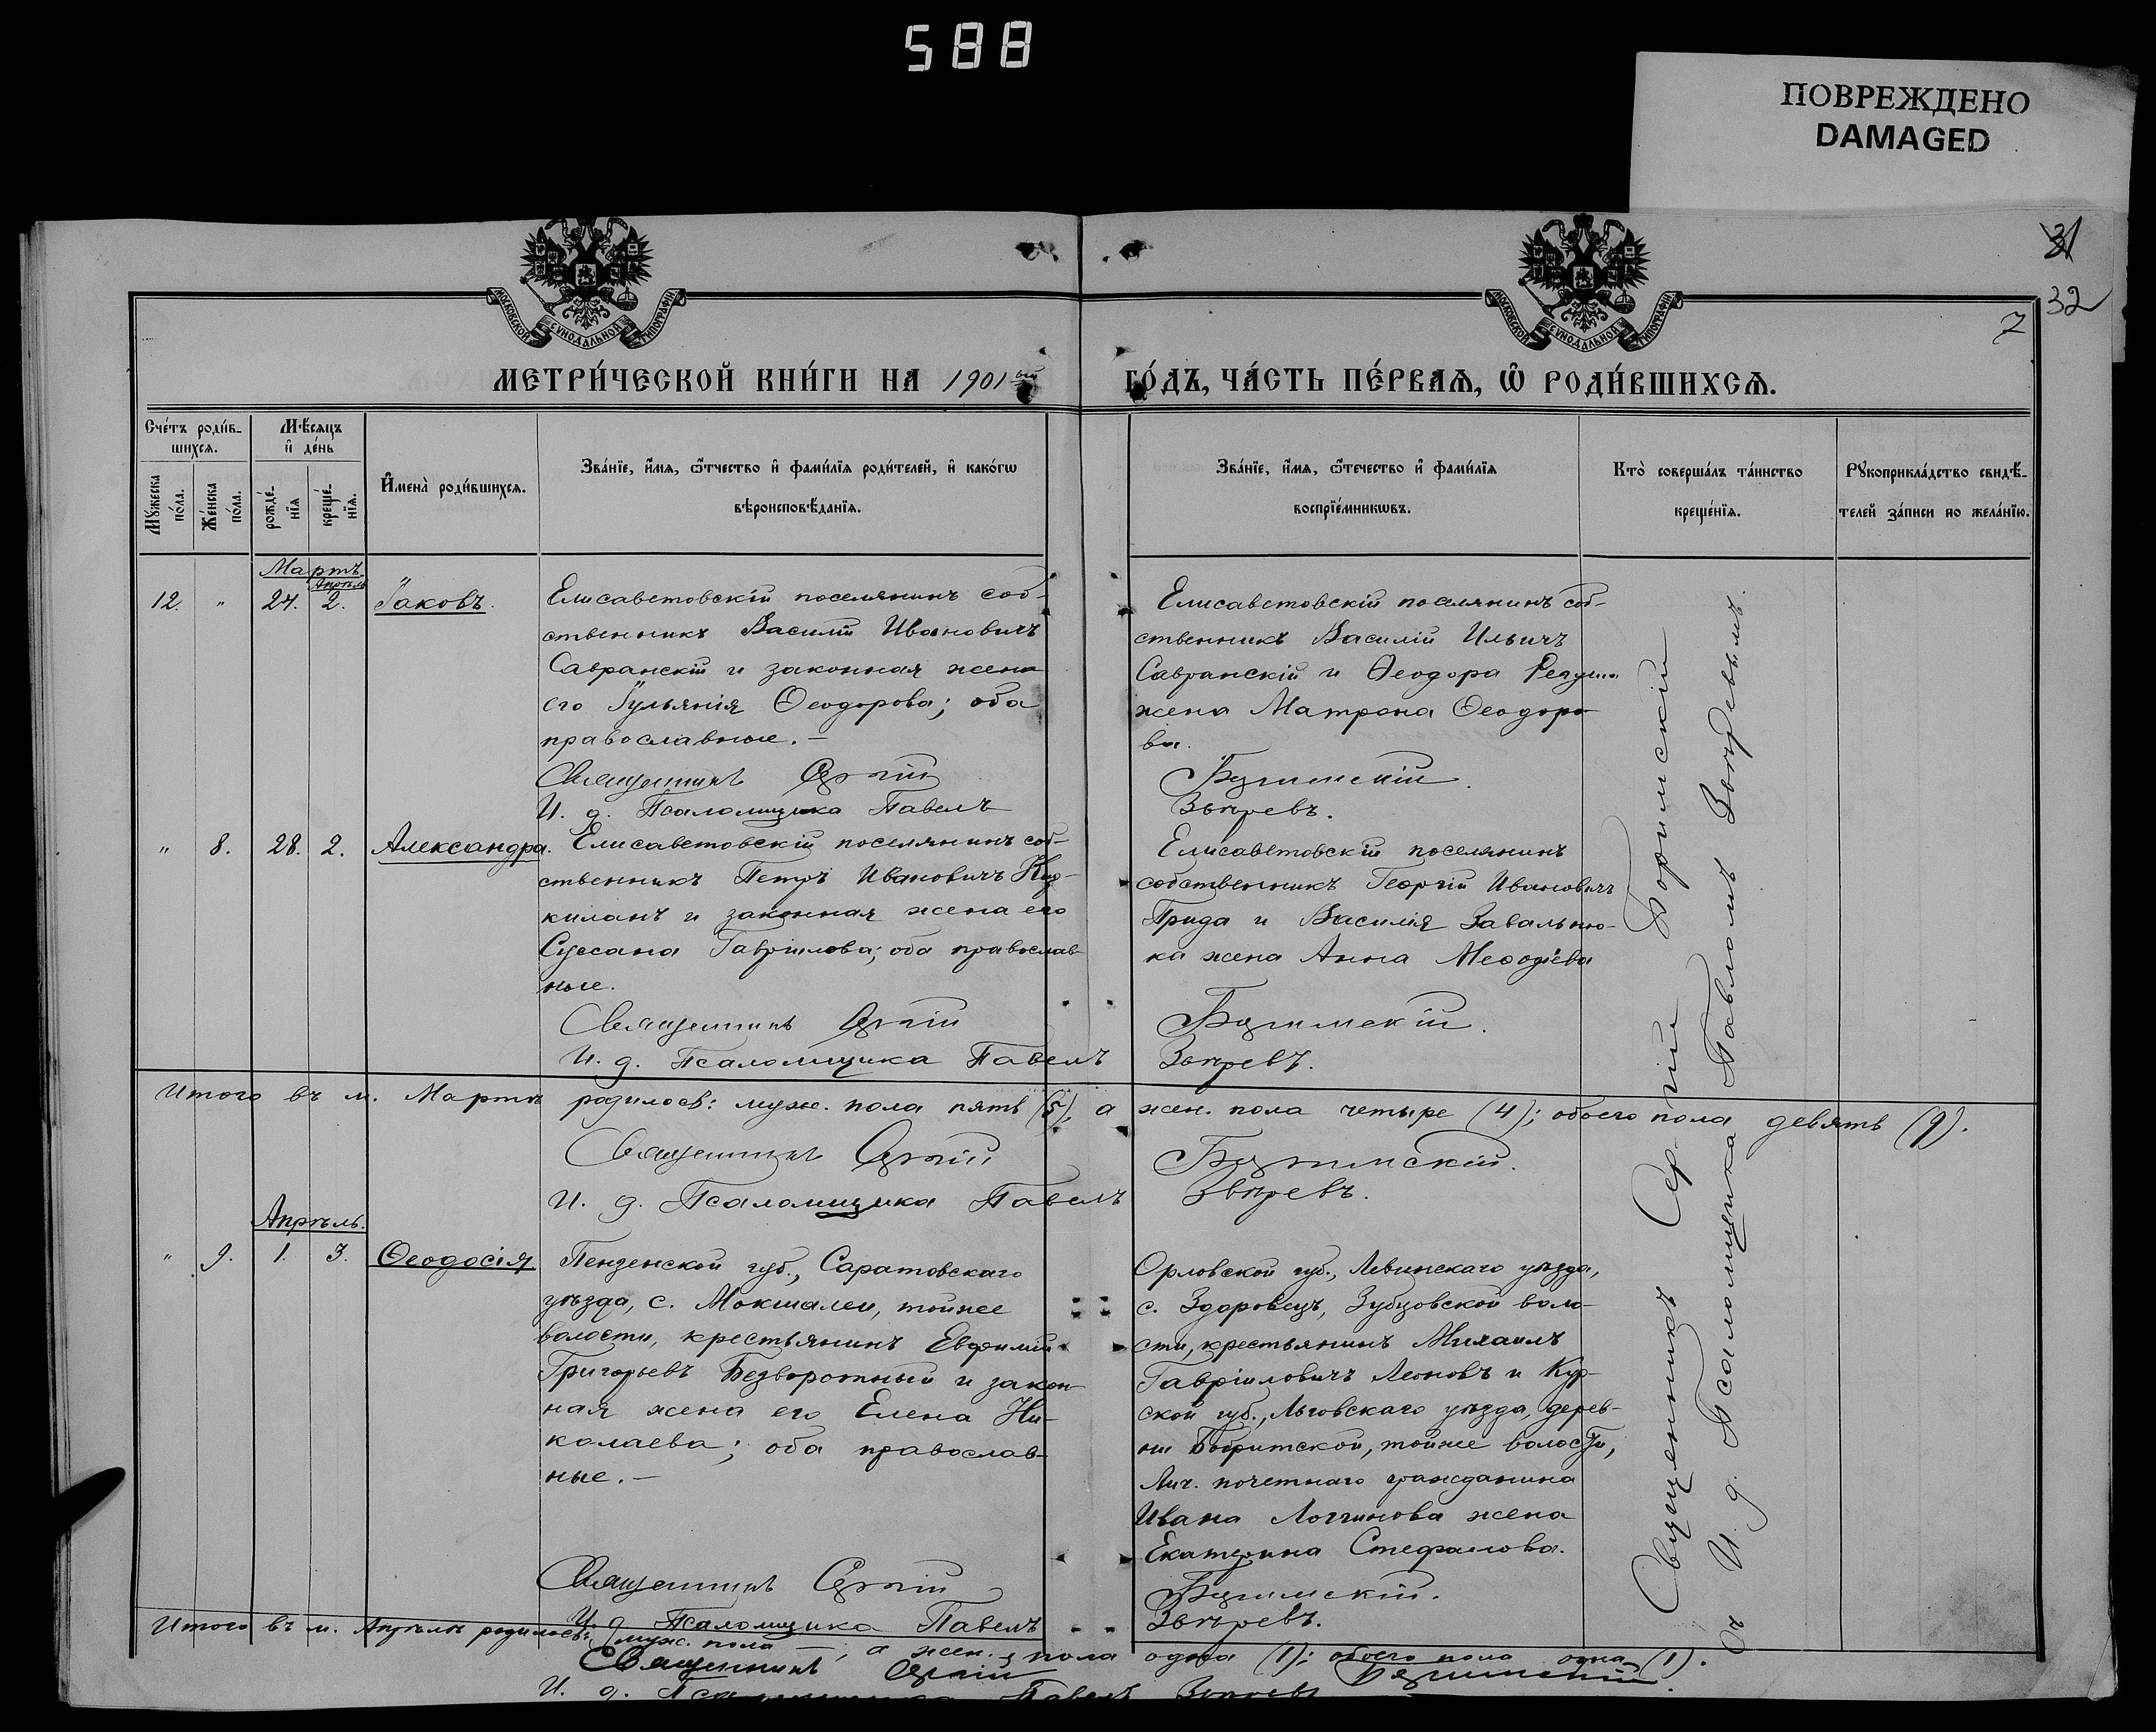 588
ПОВРЕЖДЕНО
DAMAGED
31
32
7
МОСКОВСКОЙ СѴНОДАЛЬНОЙ ТИПОГРАФІИ
МОСКОВСКОЙ СѴНОДАЛЬНОЙ ТИПОГРАФІИ
МЕТРИ́ЧЕСКОЙ КНИ́ГИ НА 1901ый
ГО́ДЪ, ЧА́СТЬ ПЕ́РВАѦ, Ѿ РОДИ́ВШИХСѦ.
Сче́тъ роди́в-
шихсѧ.
Мꙋжеска по́ла.
Же́нска по́ла.
Мѣ́сѧцъ
и де́нь
рожде́-
нїѧ
креще́-
нїѧ.
Имена̀ роди́вшихсѧ.
Зва́нїе, и́мѧ, ѻ҆́тчество и фами́лїѧ роди́телей, и како́гѡ
вѣроисповѣ́данїѧ.
Зва́нїе, и́мѧ, ѻ҆те́чество и фами́лїѧ
воспрїе́мникѡвъ.
Кто̀ соверша́лъ та́инство
креще́нїѧ.
Рꙋкоприкла́дство свидѣ́-
телей за́писи по жела́нїю.
Мартъ.
Апрѣль
12. " 24. 2. Іаковъ.
Елисаветовскій поселянинъ соб-
ственникъ Василій Ивановичъ
Савранскій и законная жена
его Іульянія Ѳеодорова; оба
православные. –
Священникъ Сергій
И. д. Псаломщика Павелъ
Елисаветовскій поселянинъ соб-
ственникъ Василій Ильичъ
Савранскій и Ѳеодора
жена Матрона Ѳеодоро-
ва.
Звѣревъ.
" 8. 28. 2. Александра.
Елисаветовскій поселянинъ соб-
ственникъ Петръ Ивановичъ
киланъ и законная жена его
Сусана Гавріилова; оба православ-
ные.
Священникъ Сергій
И. д. Псаломщика Павелъ
Елисаветовскій поселянинъ
собственникъ Георгій Ивановичъ
Грида и Василія Завальню-
ка жена Анна Меѳодіева
Звѣревъ.
Итого въ м. Мартѣ родилось: муж. пола пять (5), а жен. пола четыре (4); обоего пола девять (9).
Священникъ Сергій
И. д. Псаломщика Павелъ Звѣревъ.
Апрѣль.
" 9. 1. 3. Ѳеодосія
Пензенской губ., Саратовскаго
уѣзда, с. Мокшалеи, тойже
волости, крестьянинъ Евфимій
Григорьевъ Безворотный и закон-
ная жена его Елена Ни-
колаева; оба православ-
ные. –
Священникъ Сергій
И. д. Псаломщика Павелъ
Орловской губ., Ливинскаго уѣзда,
с. Здоровецъ, Зубцовской воло-
сти, крестьянинъ Михаилъ
Гавріиловичъ Леоновъ и Кур-
ской губ., Льговскаго уѣзда, дерев-
ни тойже волости,
Лич. почетнаго гражданина
Ивана Логгинова жена
Екатерина Стефанова.
Звѣревъ.
Священникъ Сергій
И. д. Псаломщика Павломъ Звѣревымъ.
Итого въ м. Апрѣлѣ родилось: муж. пола –, а жен. пола одна (1); обоего пола одна (1).
Священникъ Сергій
И. д. Псаломщика Павелъ Звѣревъ